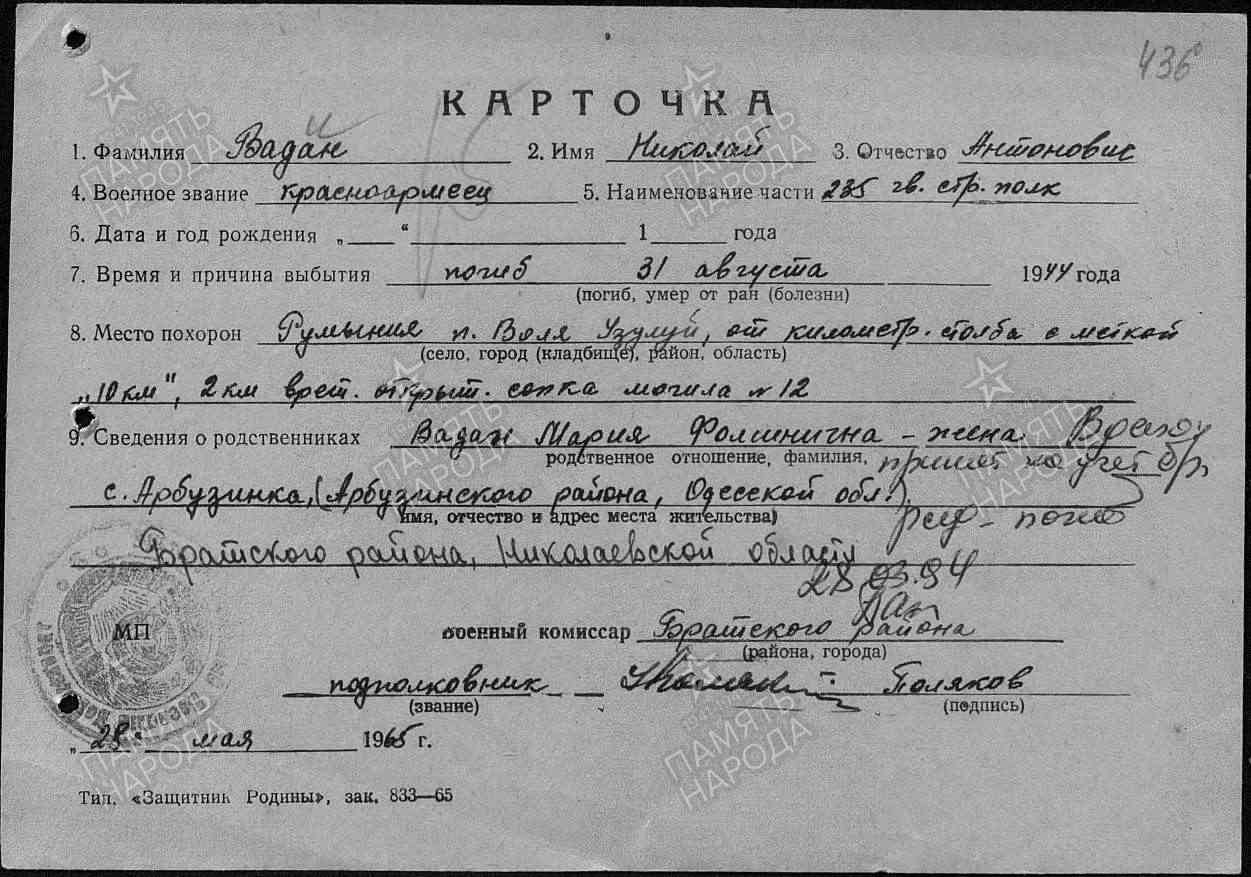 436
КАРТОЧКА
1. Фамилия Вадан 2. Имя Николай 3. Отчество Антонович
4. Военное звание красноармеец 5. Наименование части 235 гв. стр. полк
6. Дата и год рождения „ “ 1 года
7. Время и причина выбытия погиб 31 августа 1944 года
(погиб, умер от ран (болезни)
8. Место похорон Румыния п. Воля Узулуй, от километр. столба с меткой
(село, город (кладбище), район, область)
„10 км", 2 км открыт. сопка могила №12
9. Сведения о родственниках Вадан Мария – жена
родственное отношение, фамилия,
с. Арбузинка, (Арбузинского района, Одесской обл.)
имя, отчество и адрес места жительства)
погиб
Братского района, Николаевской области
28.03.94
МП военный комиссар Братского района
(района, города)
подполковник Поляков
(звание) (подпись)
„28" мая 1965 г.
Тип. «Защитник Родины», зак. 833—65
ПАМЯТЬ
НАРОДА